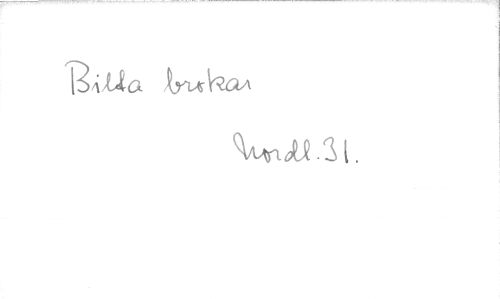 Bilda brokar
Nordl. 31.